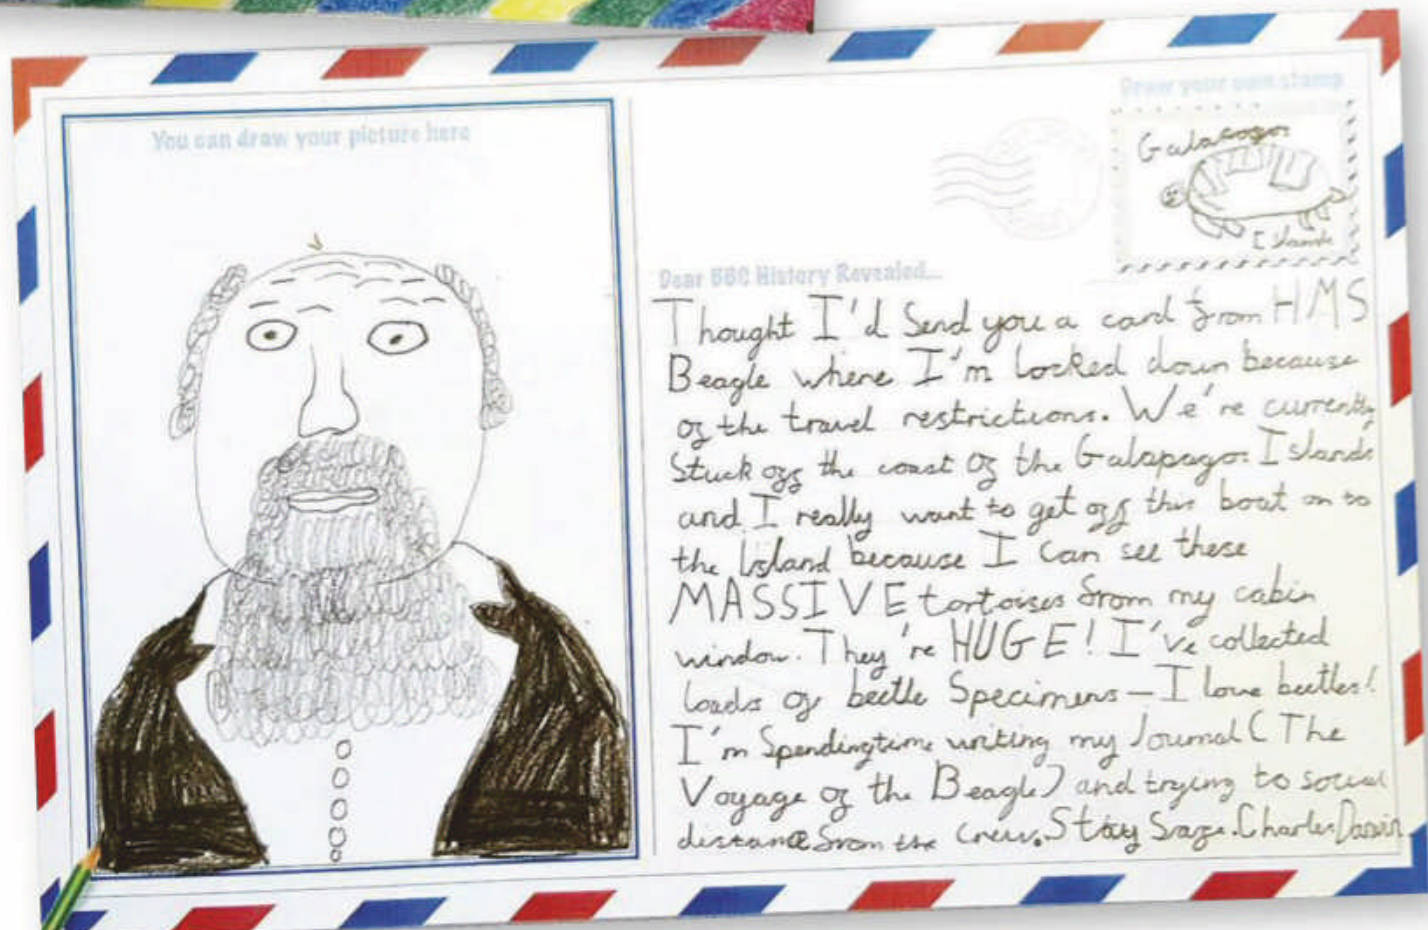 You can draw your picture here
Draw your own stamp
Galapagos
Islands
Dear BBC History Revealed...
Thought I'd Send you a card from HMS
Beagle where I'm locked down because
of the travel restrictions. We're currently
Stuck off the coast of the Galapagos Islands
and I really want to get off this boat on to
the Island because I can see these
MASSIVE tortoises from my cabin
window. They're HUGE! I've collected
loads of beetle Specimens – I love beetles!
I'm Spending time writing my Journal (The
Voyage of the Beagle) and trying to social
distance from the crew. Stay Safe. Charles Darwin